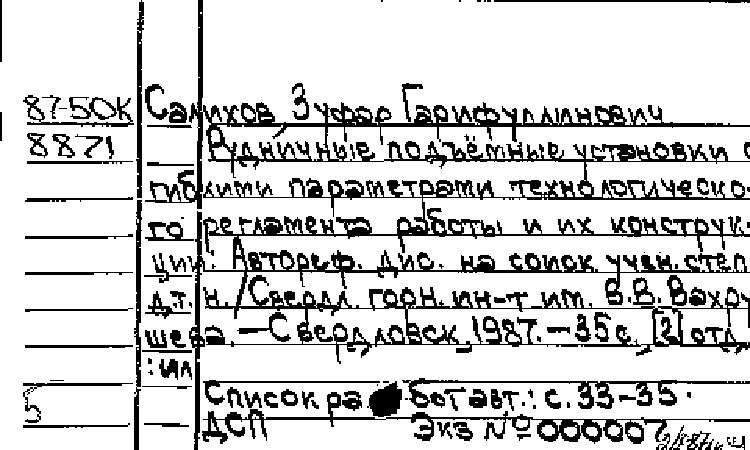 87-50К Салихов, Зуфар Гарифуллинович
8871 Рудничные подъёмные установки с
гибкими параметрами технологическо-
го регламента работы и их конструк-
ции: Автореф. дис. на соиск. учен. степ
д.т.н. /Свердл. горн. ин-т им. В.В. Вахру
шева. — Свердловск, 1987. — 35 с., [2] отд
: ил
Список работ авт.: с. 33-35.
5 ДСП Экз № 000007